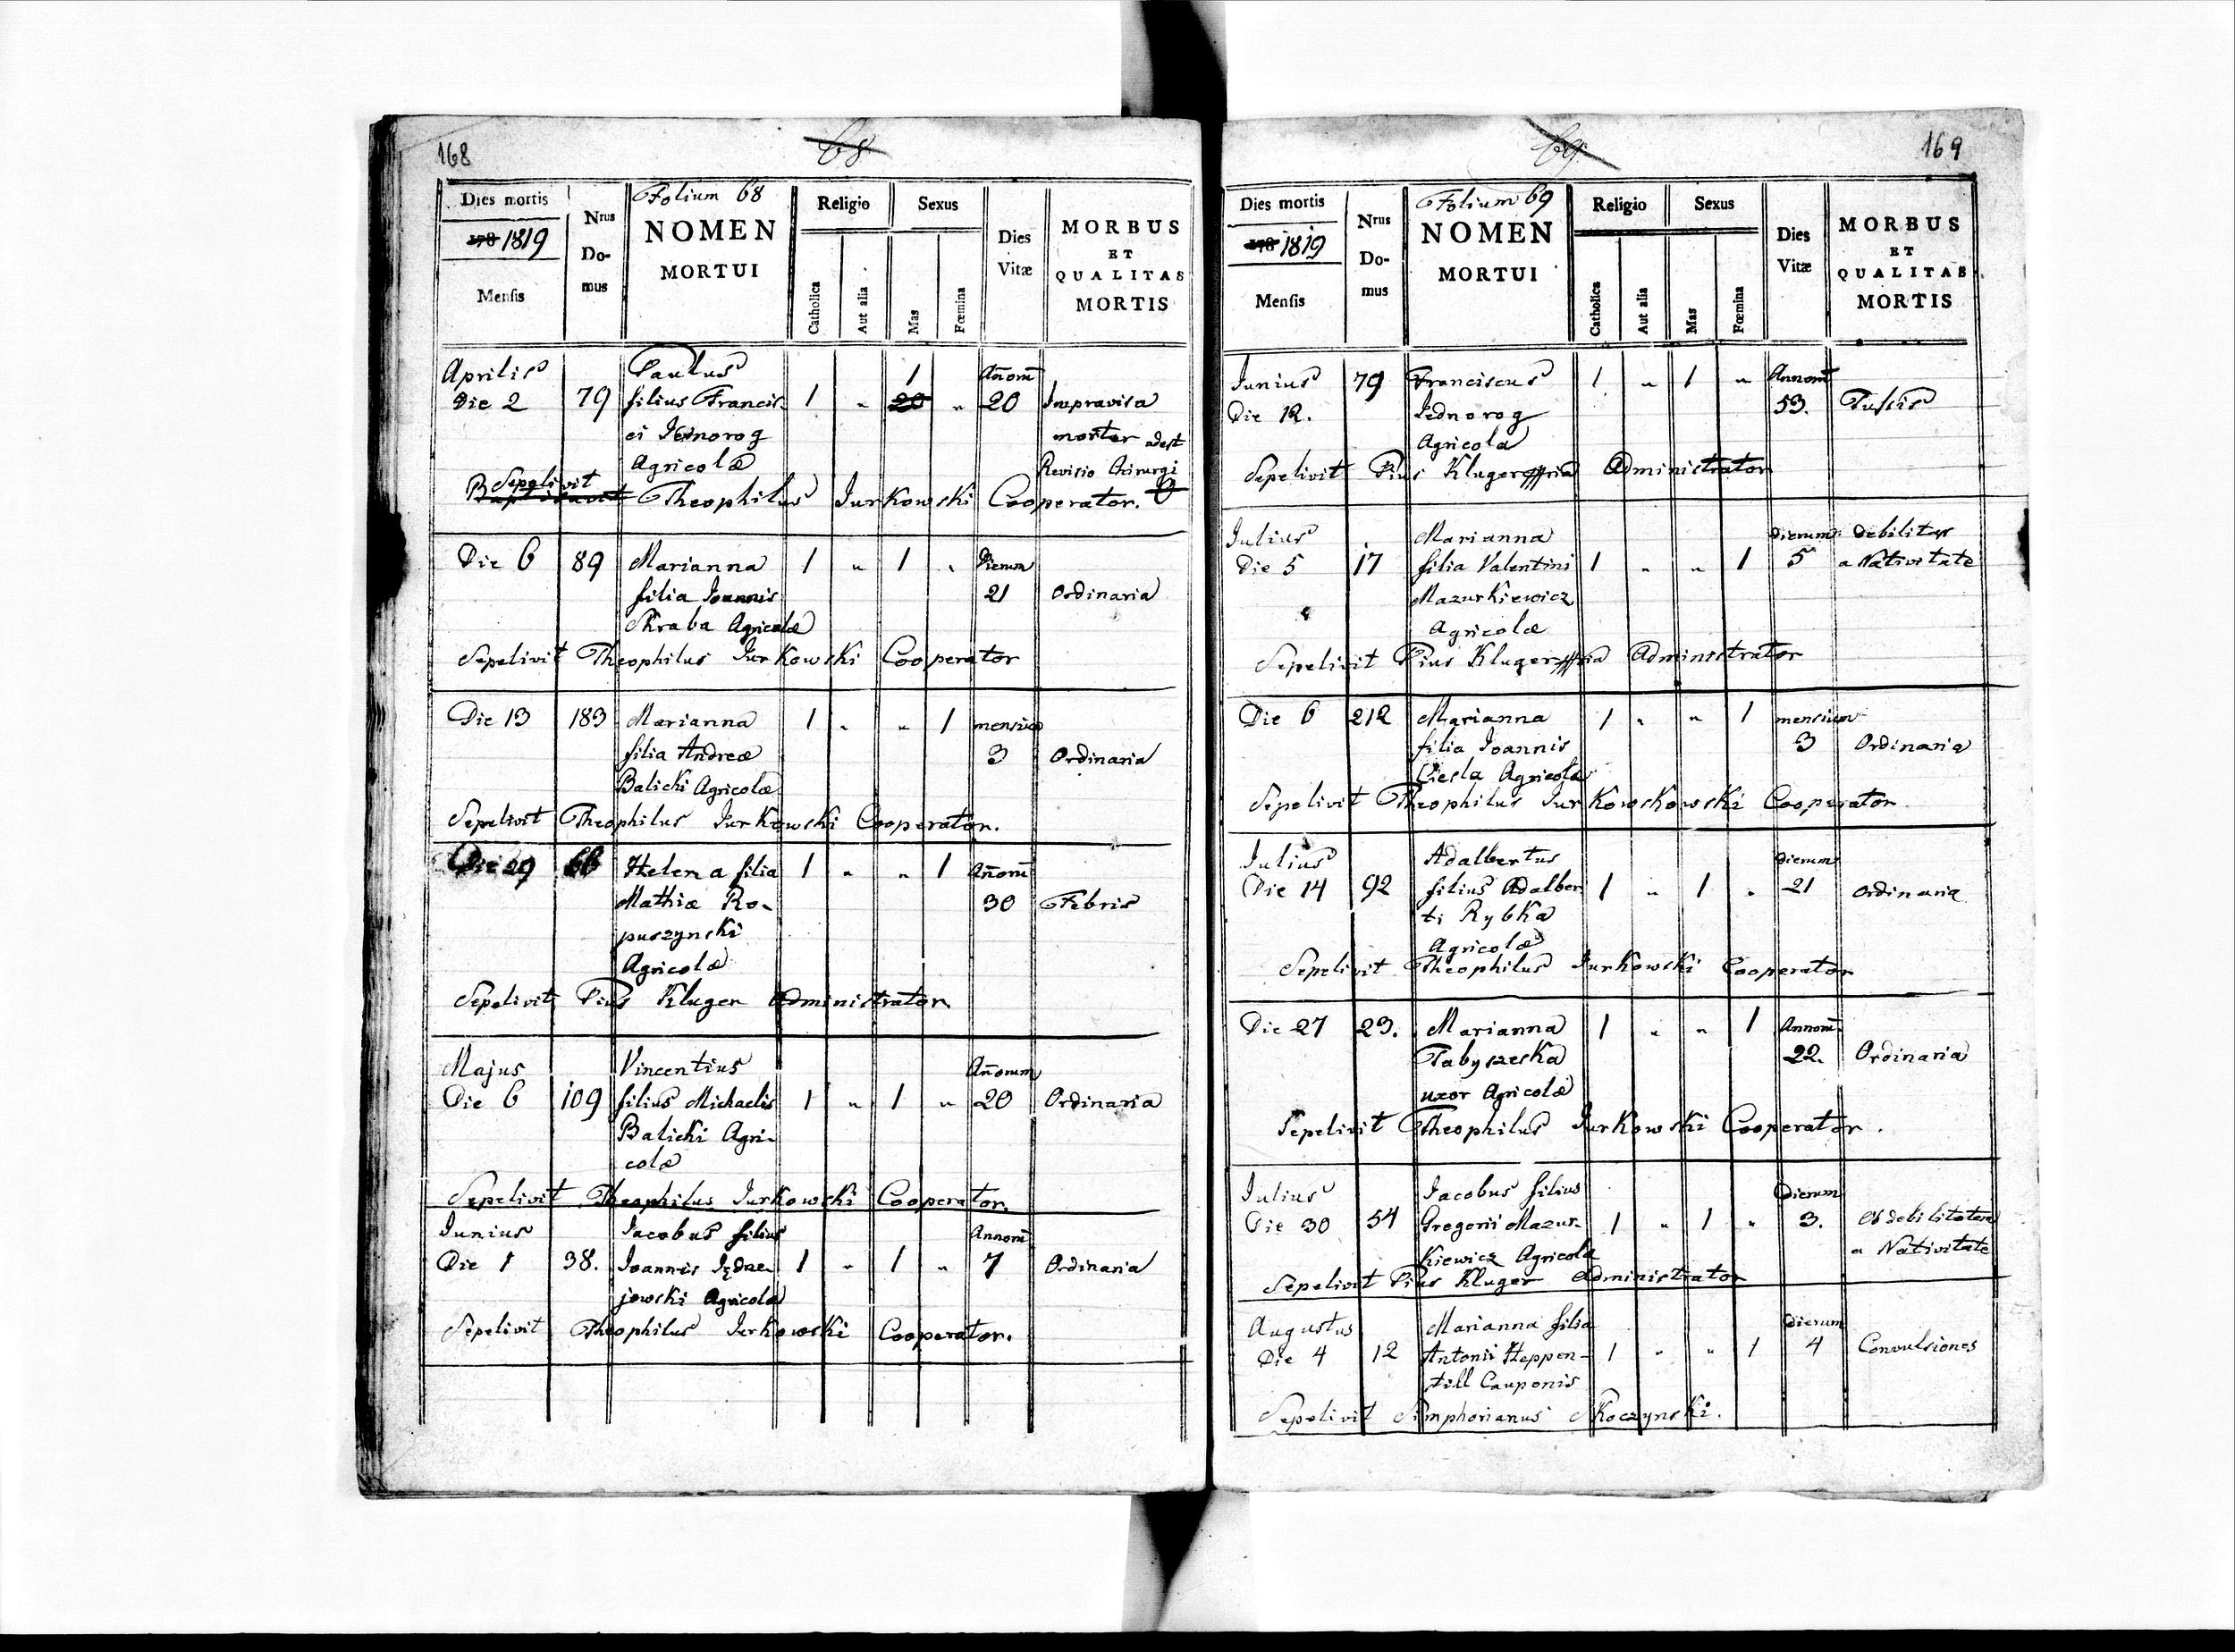 168
68
Folium 68
Dies mortis
178 1819
Mensis
Nrus
Do-
mus
NOMEN
MORTUI
Religio
Sexus
Catholica
Aut alia
Mas
Fœmina
Dies
Vitæ
MORBUS
ET
QUALITAS
MORTIS
Aprilis Paulus 1 Añorum
Die 2 79 filius Francis- 1 „ 20 „ 20 Improvisa
ci Jednorog mortor adest
Agricolæ Revisio Chirurgi
Sepelivit
Baptisavit Theophilus Jurkowski Cooperator.
Die 6 89 Marianna 1 „ 1 „ Dierum
filia Joannis 21 Ordinaria
Skraba Agricolæ
Sepelivit Theophilus Jurkowski Cooperator
Die 13 183 Marianna 1 „ „ 1 mensium
filia Andreæ 3 Ordinaria
Balicki Agricolæ
Sepelivit Theophilus Jurkowski Cooperator.
Die 29 66 Helena filia 1 „ „ 1 Añorum
Mathiæ Ro- 30 Febris
puszynski
Agricolæ
Sepelivit Pius Kluger Administrator.
Majus Vincentius Añorum
Die 6 109 filius Michaelis 1 „ 1 „ 20 Ordinaria
Balicki Agri-
colæ
Sepelivit Theophilus Jurkowski Cooperator.
Junius Jacobus filius Annorum
Die 1 38. Joannis Jędrze- 1 „ 1 „ 7 Ordinaria
jowski Agricolæ
Sepelivit Theophilus Jurkowski Cooperator.
69
169
Folium 69
Dies mortis
178 1819
Mensis
Nrus
Do-
mus
NOMEN
MORTUI
Religio
Sexus
Catholica
Aut alia
Mas
Fœmina
Dies
Vitæ
MORBUS
ET
QUALITAS
MORTIS
Junius 79 Franciscus 1 „ 1 „ Annorum
Die 12. Jednorog 53. Tussis
Agricola
Sepelivit Pius Kluger Administrator
Julius Marianna Dierum debilitas
Die 5 17 filia Valentini 1 „ „ 1 5 a Nativitate
Mazurkiewicz
Agricolæ
Sepelivit Pius Kluger Administrator
Die 6 212 Marianna 1 „ „ 1 mensium
filia Joannis 3 Ordinaria
Ciesla Agricolæ
Sepelivit Theophilus Jurkowskowski Cooperator
Julius Adalbertus Dierum
Die 14 92 filius Adalber 1 „ 1 „ 21 Ordinaria
ti Rybka
Agricolæ
Sepelivit Theophilus Jurkowski Cooperator
Die 27 23. Marianna 1 „ „ 1 Annorum
Tabyszeska 22. Ordinaria
uxor Agricolæ
Sepelivit Theophilus Jurkowski Cooperator.
Julius Jacobus filius Dierum
Die 30 54 Gregorii Mazur- 1 „ 1 „ 3. Ob debilitatem
kiewicz Agricolæ a Nativitate
Sepelivit Pius Kluger Administrator
Augustus Marianna filia Dierum
Die 4 12 Antonii Heppen- 1 „ „ 1 4 Convulsiones
till Cauponis
Sepelivit Simphorianus Skoczynski.